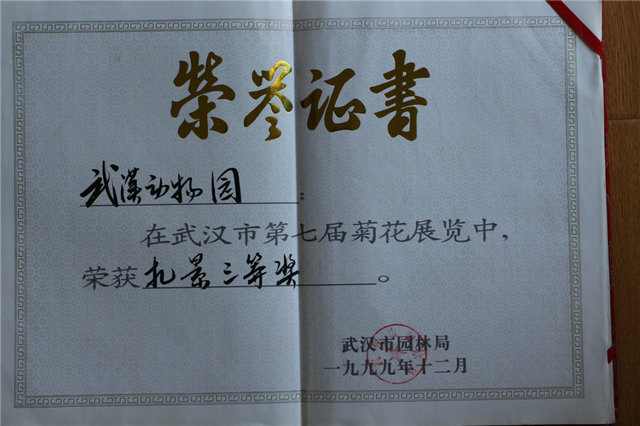 荣誉证书
武漢动物园：
在武汉市第七届菊花展览中，
荣获扎景三等奖。
武汉市园林局
一九九九年十二月